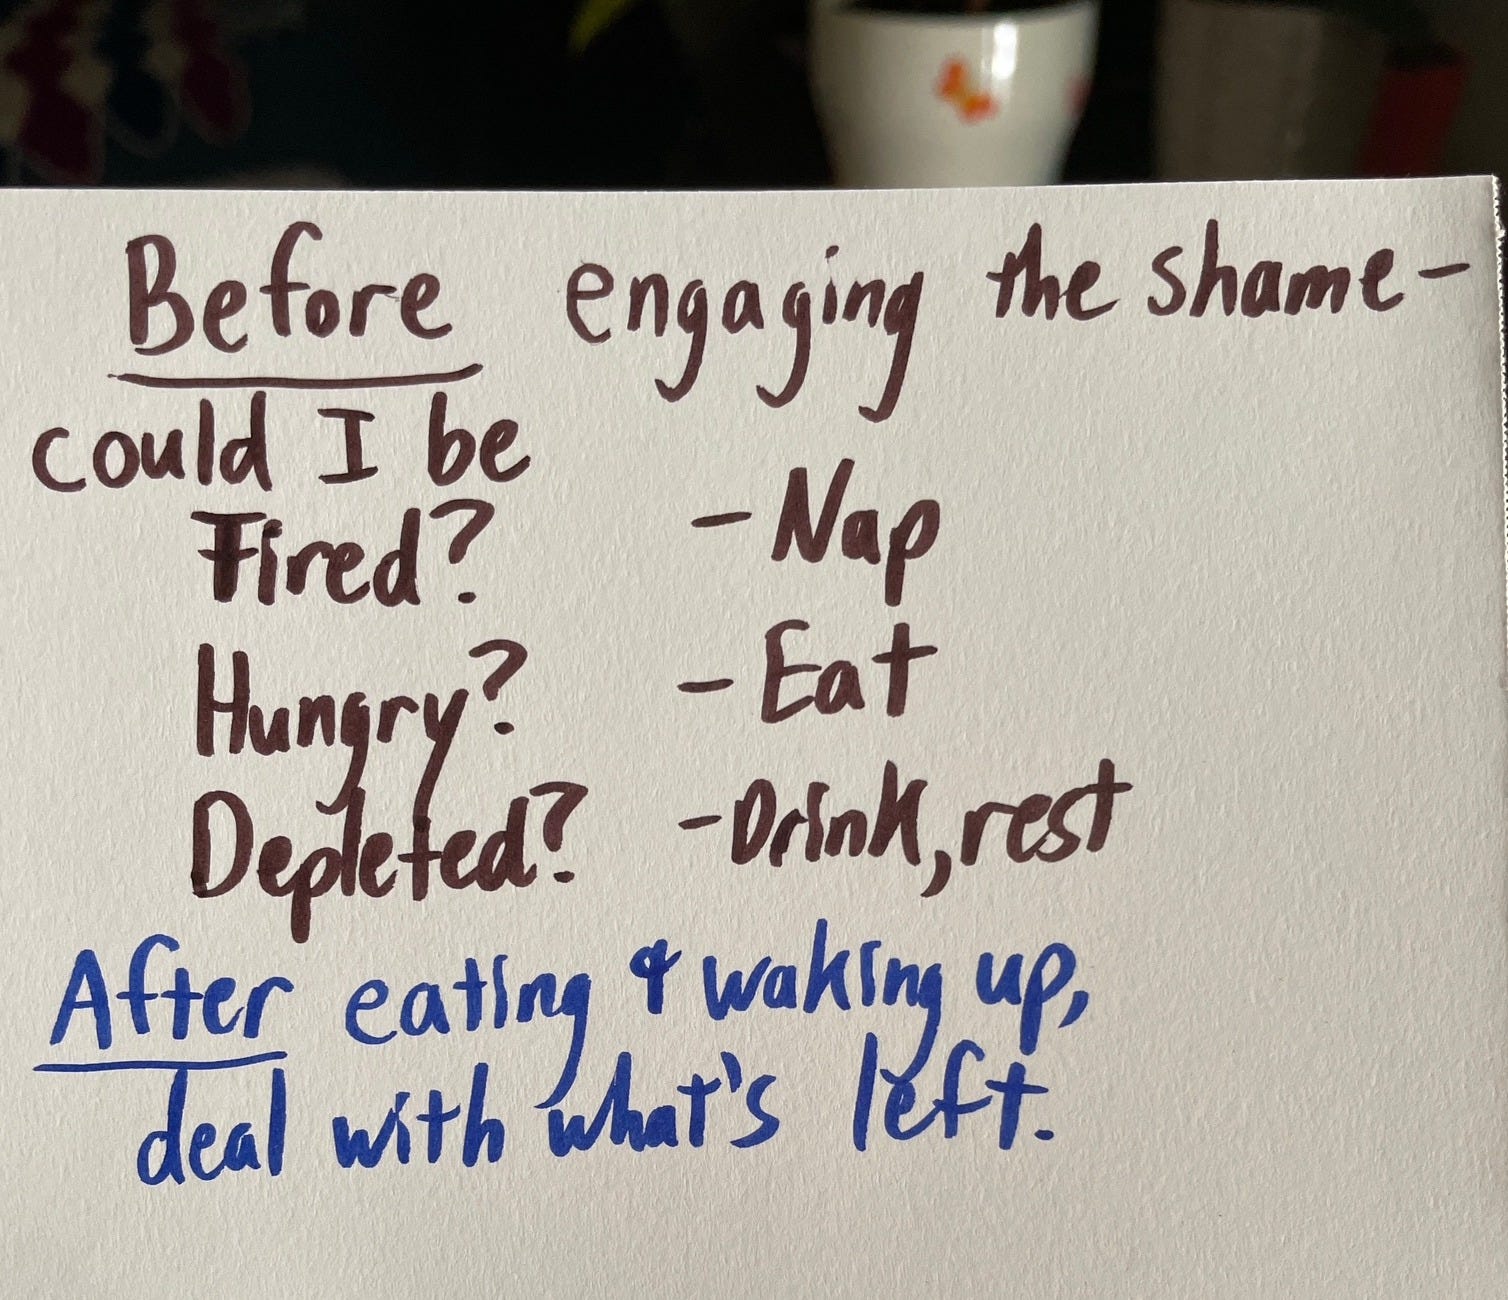 Before engaging the shame-
could I be
Tired? - Nap
Hungry? - Eat
Depleted? - Drink, rest
After eating & waking up,
deal with what's left.